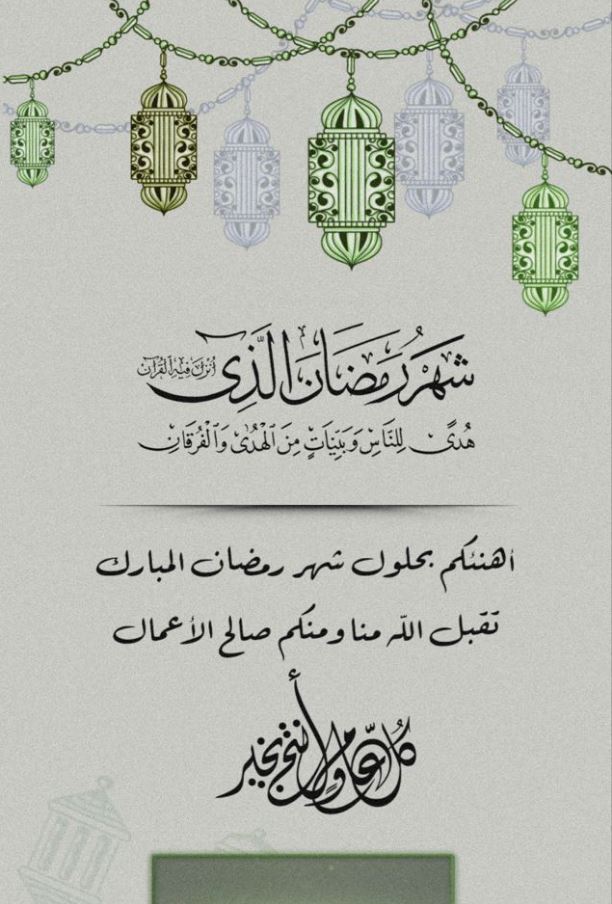 شَهْرُ رَمَضَانَ الَّذِي أُنْزِلَ فِيهِ الْقُرْآنُ
هُدًى لِلنَّاسِ وَبَيِّنَاتٍ مِنَ الْهُدَىٰ وَالْفُرْقَانِ
أهنئكم بحلول شهر رمضان المبارك
تقبل الله منا ومنكم صالح الأعمال
كل عام وأنتم بخير